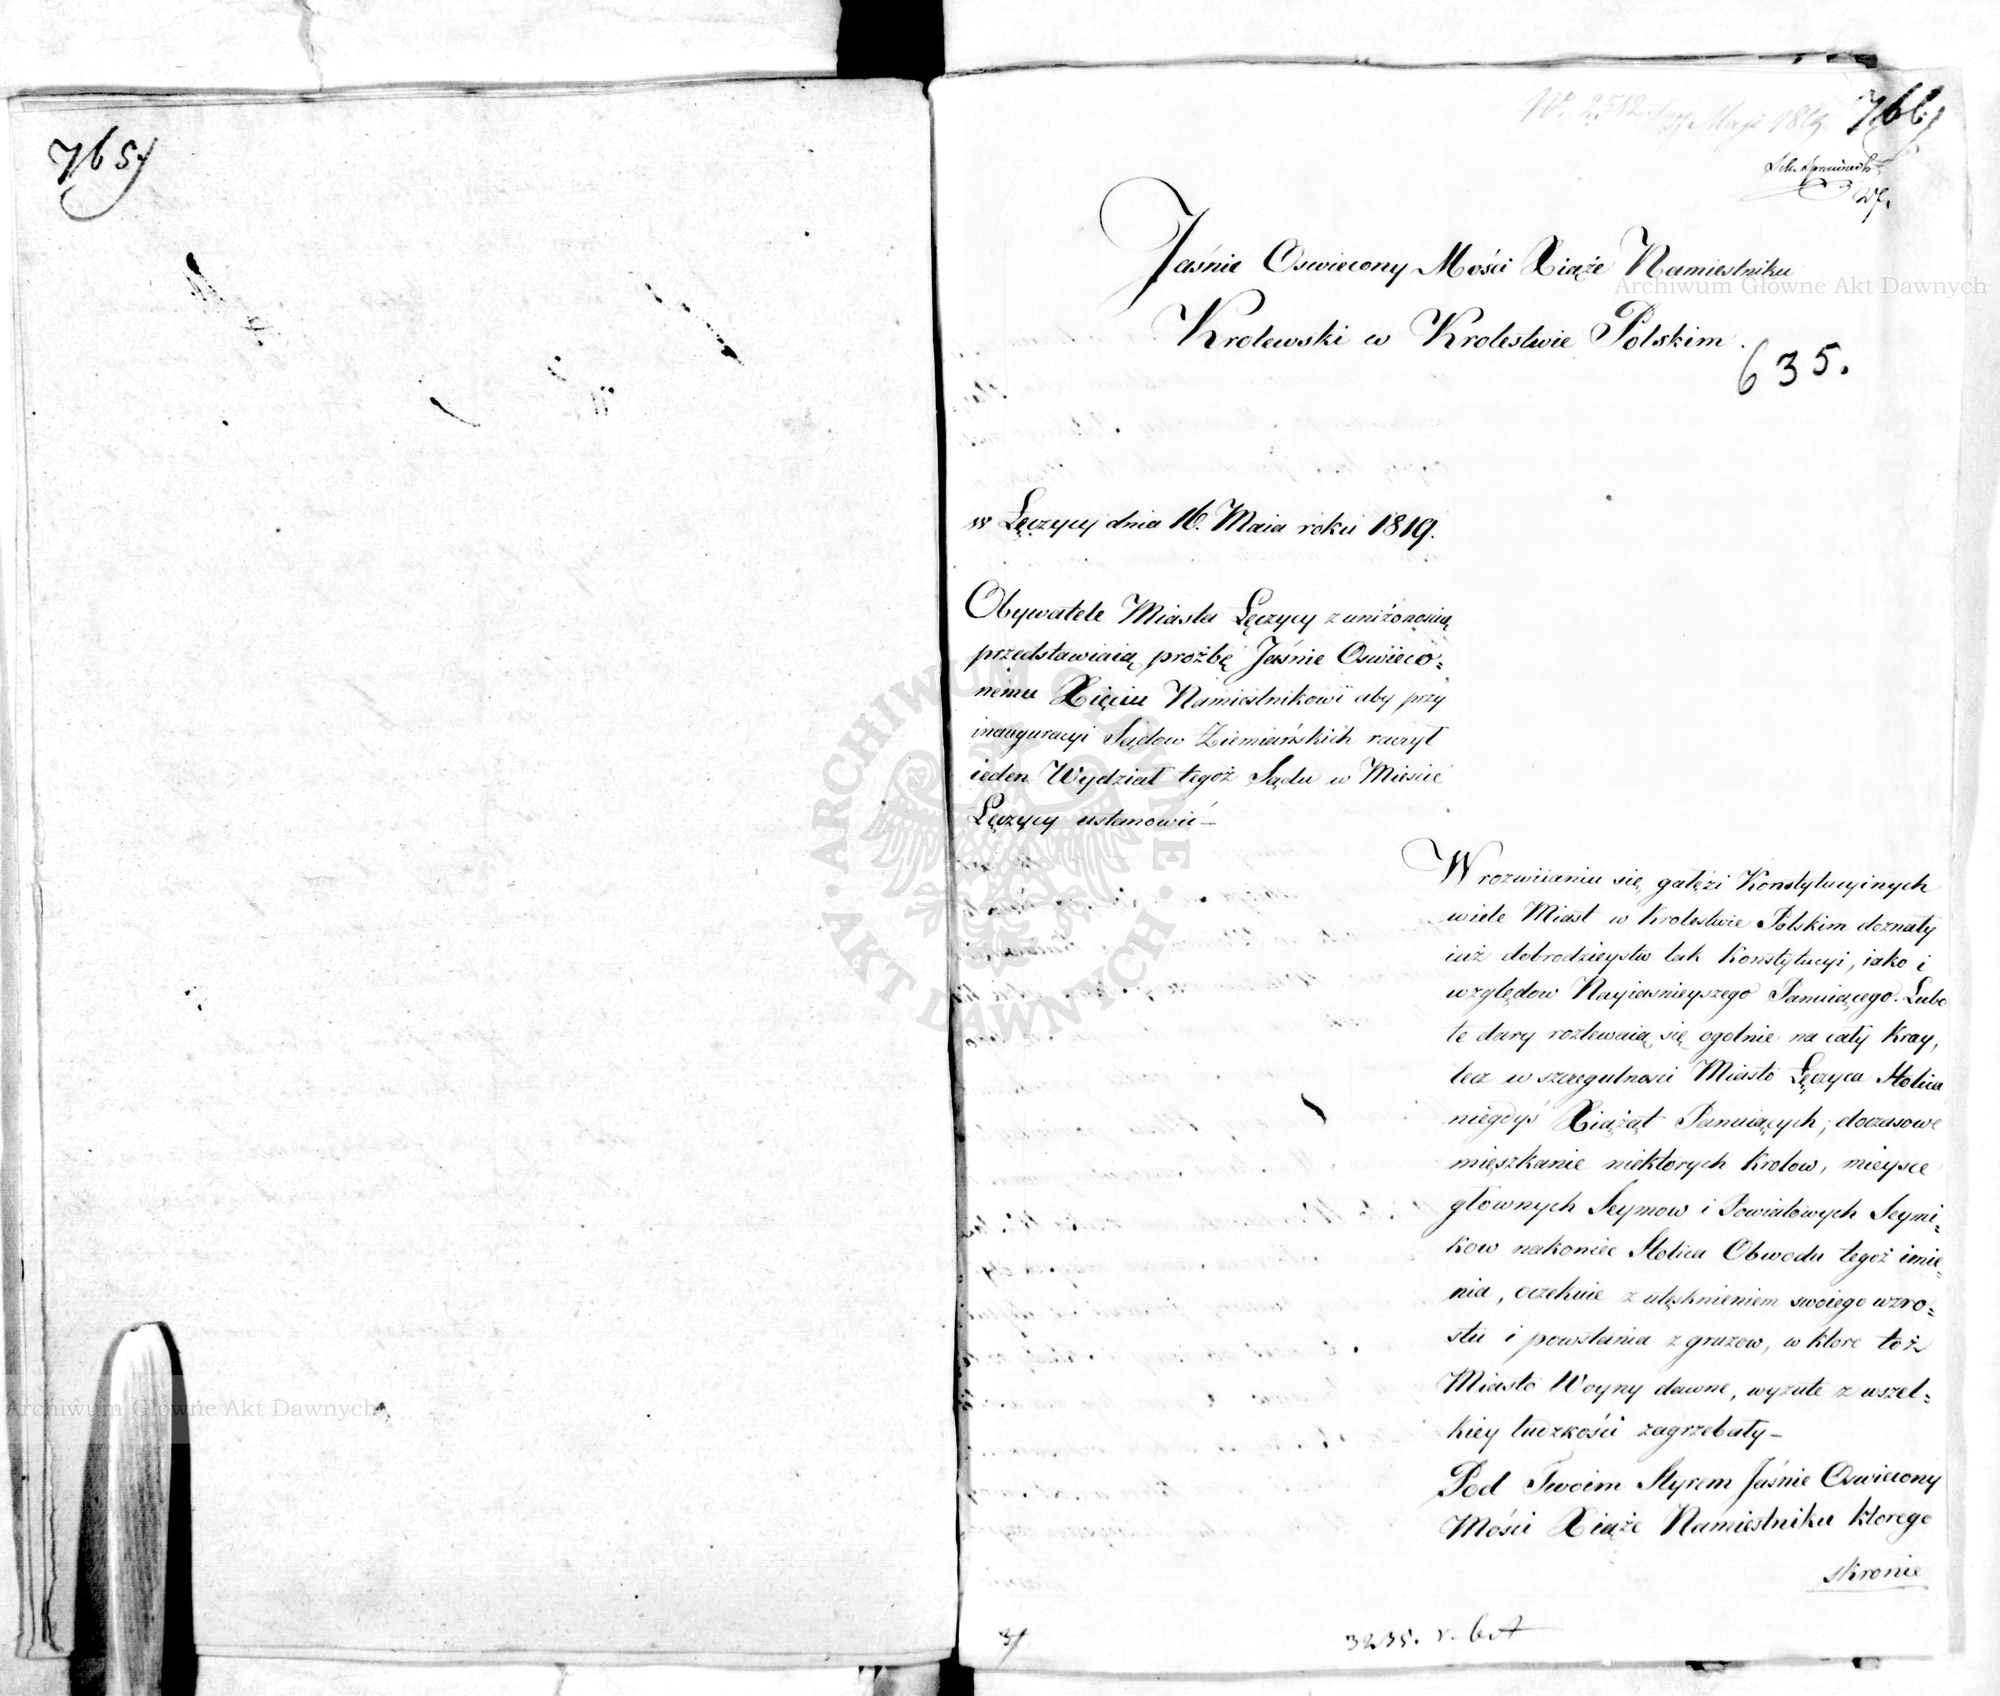 765
No. 2512. 17 Maji 1819
766
Jaśnie Oswiecony Mości Xiąże Namiestniku
Krolewski w Krolestwie Polskim.
635.
w Łęczycy dnia 16. Maia roku 1819.
Obywatele Miasta Łęczycy z uniżonością
przedstawiaią proźbę Jaśnie Oswieco=
nemu Xięciu Namiestnikowi aby przy
inauguracyi Sądow Ziemiańskich raczył
ieden Wydział tegoż Sądu w Mieście
Łęczycy ustanowić —
W rozwiianiu się gałęzi Konstytucyinych
wiele Miast w Krolestwie Polskim doznały
iuż dobrodzieystw tak Konstytucyi, iako i
względow Nayiasnieyszego Panuiącego. Lubo
te dary rozlewaią się ogolnie na cały Kray,
lecz w szczegulnosci Miasto Łęczyca Stolica
niegdyś Xiążąt Panuiących, doczasowe
mięszkanie niektorych Krolow, mieysce
głownych Seymow i Powiatowych Seymi=
kow nakoniec Stolica Obwodu tegoż imie=
nia, oczekuie z utęsknieniem swoiego wzro=
stu i powstania z gruzow, w ktore toż
Miasto Woyny dawne, wyzute z wszel=
kiey ludzkości zagrzebały —
Pod Twoim Styrem Jaśnie Oswiecony
Mości Xiąże Namiestniku ktorego
skronie
3235. v. 6
Archiwum Główne Akt Dawnych
Archiwum Główne Akt Dawnych
ARCHIWUM GŁÓWNE AKT DAWNYCH